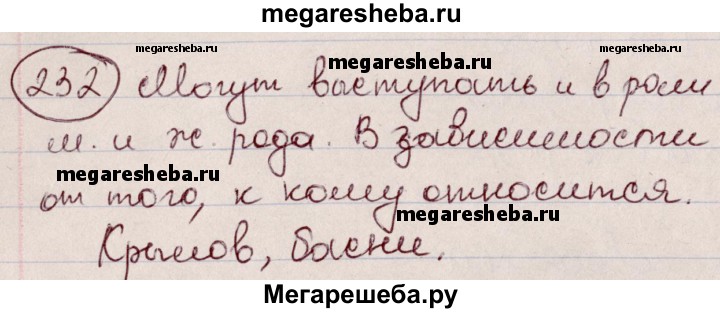 megaresheba.ru
megaresheba.ru megaresheba.ru
232 Могут выступать и в роли
megaresheba.ru
м. и ж. рода. В зависимости
megaresheba.ru
от того, к кому относится.
megaresheba.ru
Крылов, басни.
Мегарешеба.ру